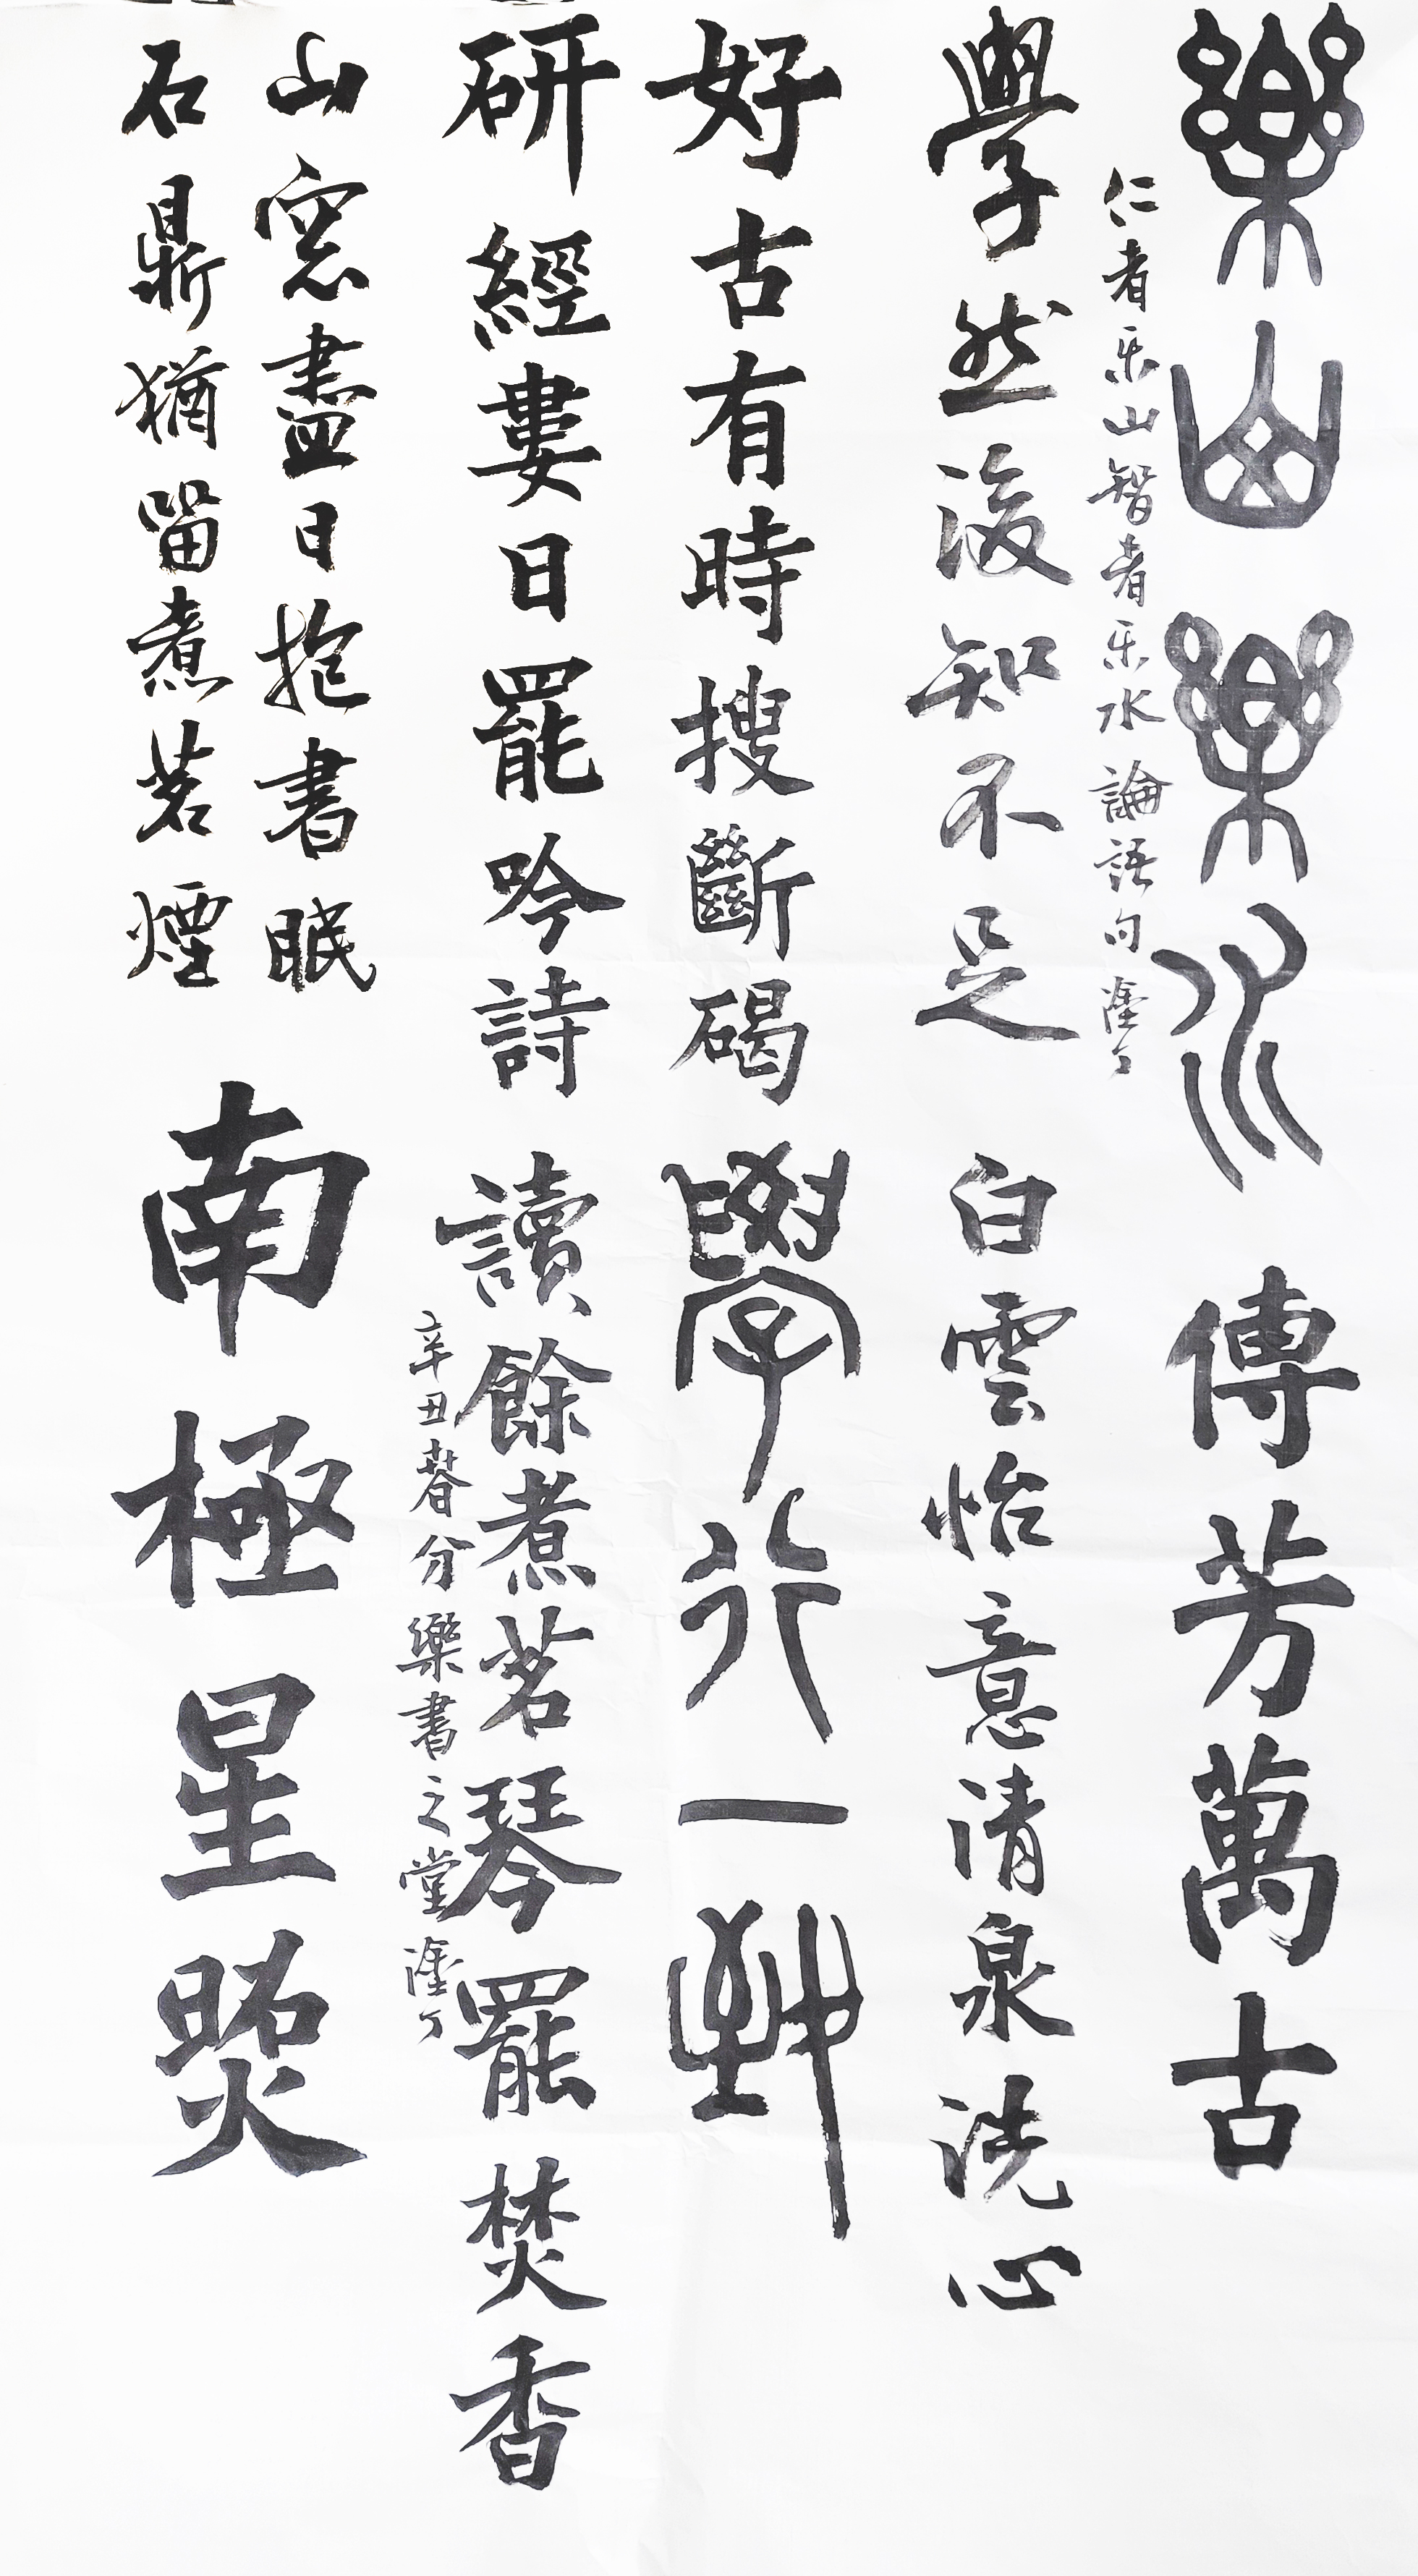 樂山樂水
傳芳萬古
仁者乐山智者乐水論語句
學然後知不足
白雲怡意清泉洗心
好古有時搜斷碣
學行一
研經婁日罷吟詩
讀餘煮茗琴罷焚香
辛丑春分樂書之堂
山窓盡日抱書眠
石鼎猶留煮茗煙
南極星照